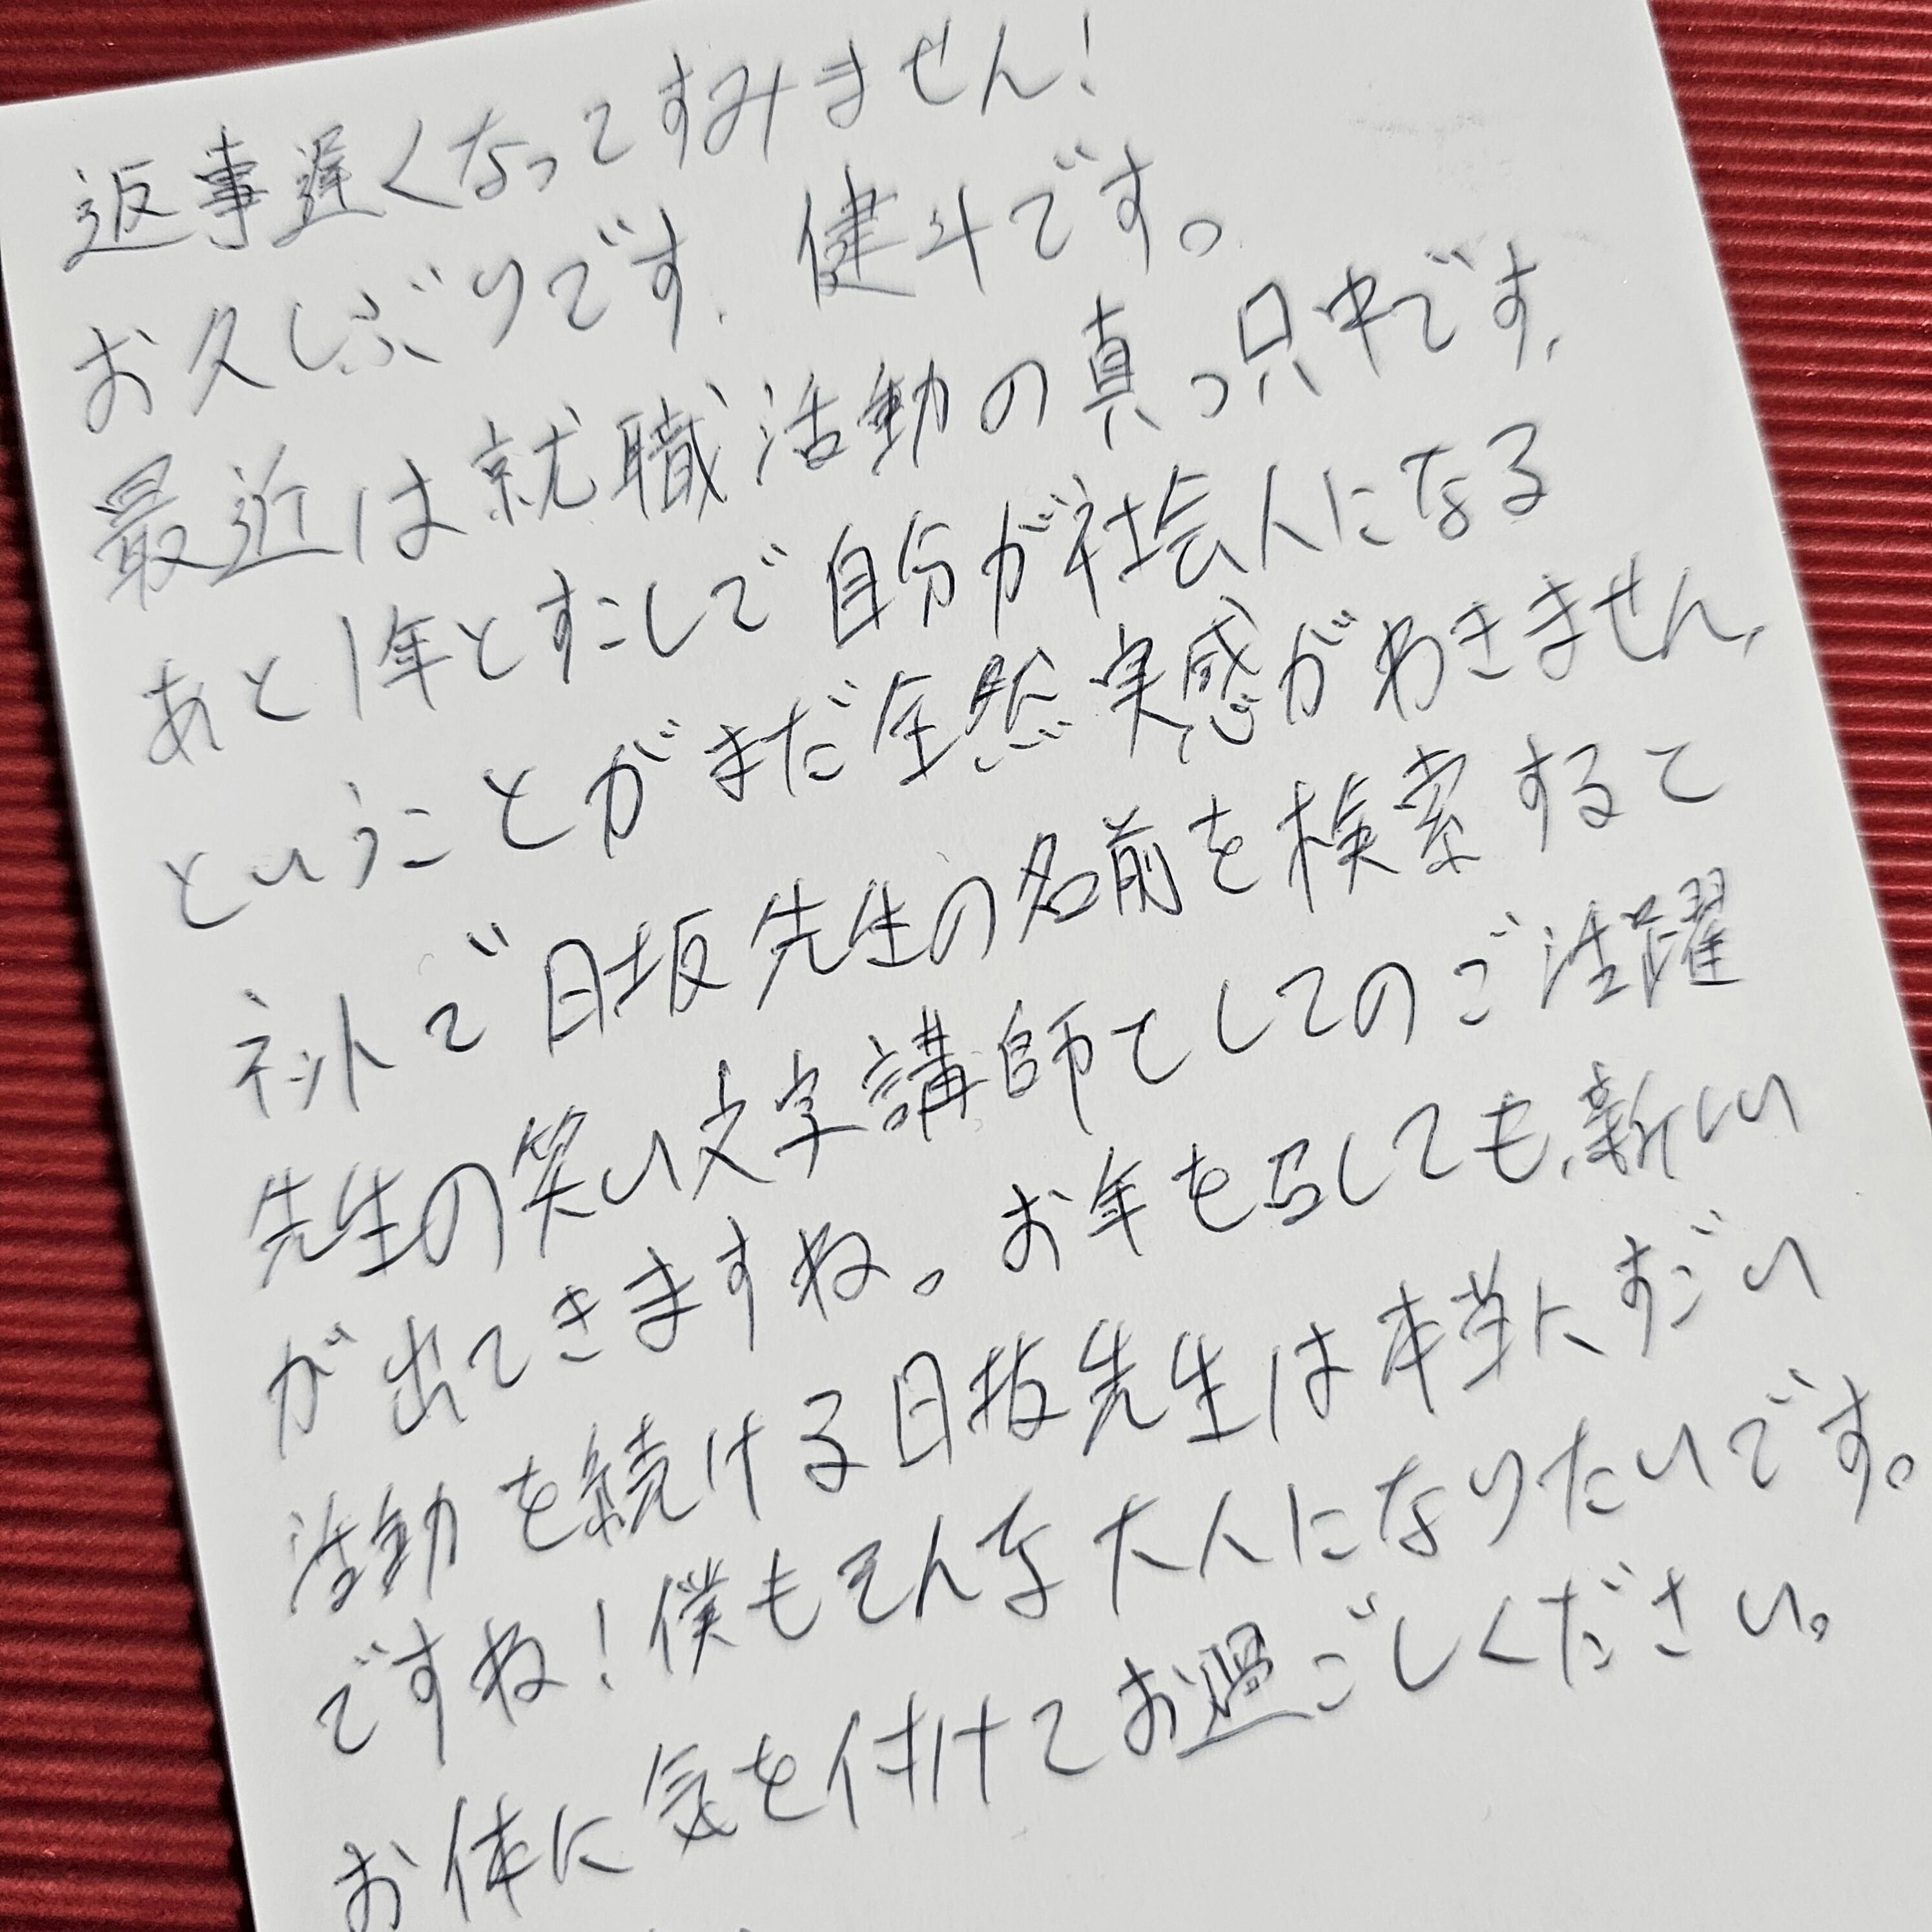 返事遅くなってすみません!
お久しぶりです、健斗です。
最近は就職活動の真っ只中です、
あと1年とすこしで自分が社会人になる
ということがまだ全然実感がわきません、
ネットで日坂先生の名前を検索すると
先生の笑い文字講師としてのご活躍
が出てきますね。お年を召しても、新しい
活動を続ける日坂先生は本当にすごい
ですね!僕もそんな大人になりたいです。
お体に気を付けてお過ごしください。